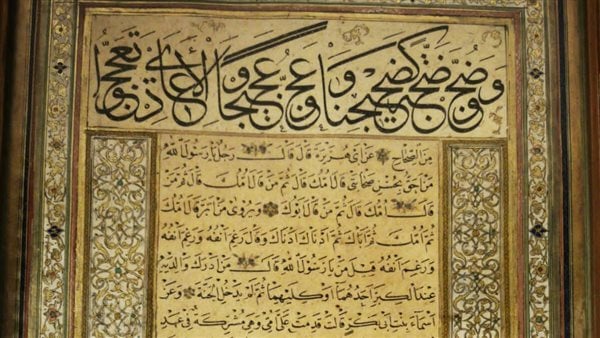 من الصحاح عن أبي هريرة قال قال رجل يا رسول الله
من أحق بحسن صحابتي قال أمك قال ثم من قال أمك قال ثم من
قال أمك قال ثم من قال أبوك ويروى من أبر قال أمك
ثم أمك ثم أباك ثم أدناك أدناك وقال رغم أنفه ورغم أنفه
ورغم أنفه قيل من يا رسول الله قال من أدرك والديه
عند الكبر أحدهما أو كليهما ثم لم يدخل الجنة وعن
أسماء بنت أبي بكر قالت قدمت علي أمي وهي مشركة في عهد